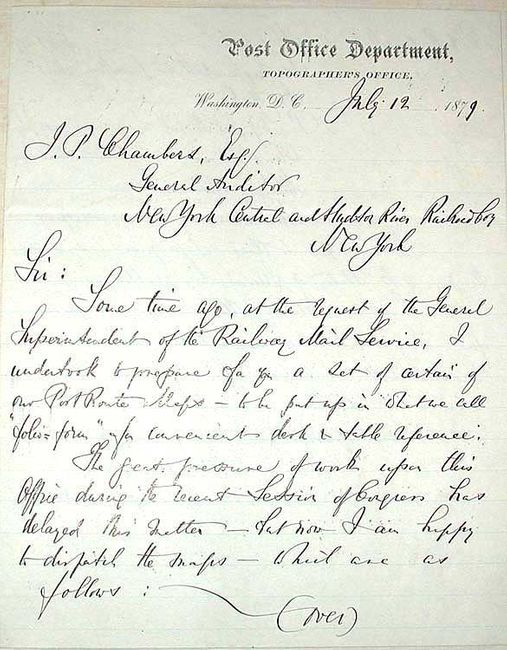 Post Office Department,
TOPOGRAPHER'S OFFICE,
Washington, D. C., July 12 1879.
J. P. Chambers, Esq.
General Auditor
New York Central and Hudson River Railroad Coy
New York
Sir:
Some time ago, at the request of the General
Superintendent of the Railway Mail Service, I
undertook to prepare for you a set of certain of
our Post Route Maps – to be put up in what we call
"folio-form" for convenient desk & table reference.
The great pressure of work upon this
Office during the recent Session of Congress has
delayed this matter – but now I am happy
to dispatch the maps – which are as
follows:
(over)